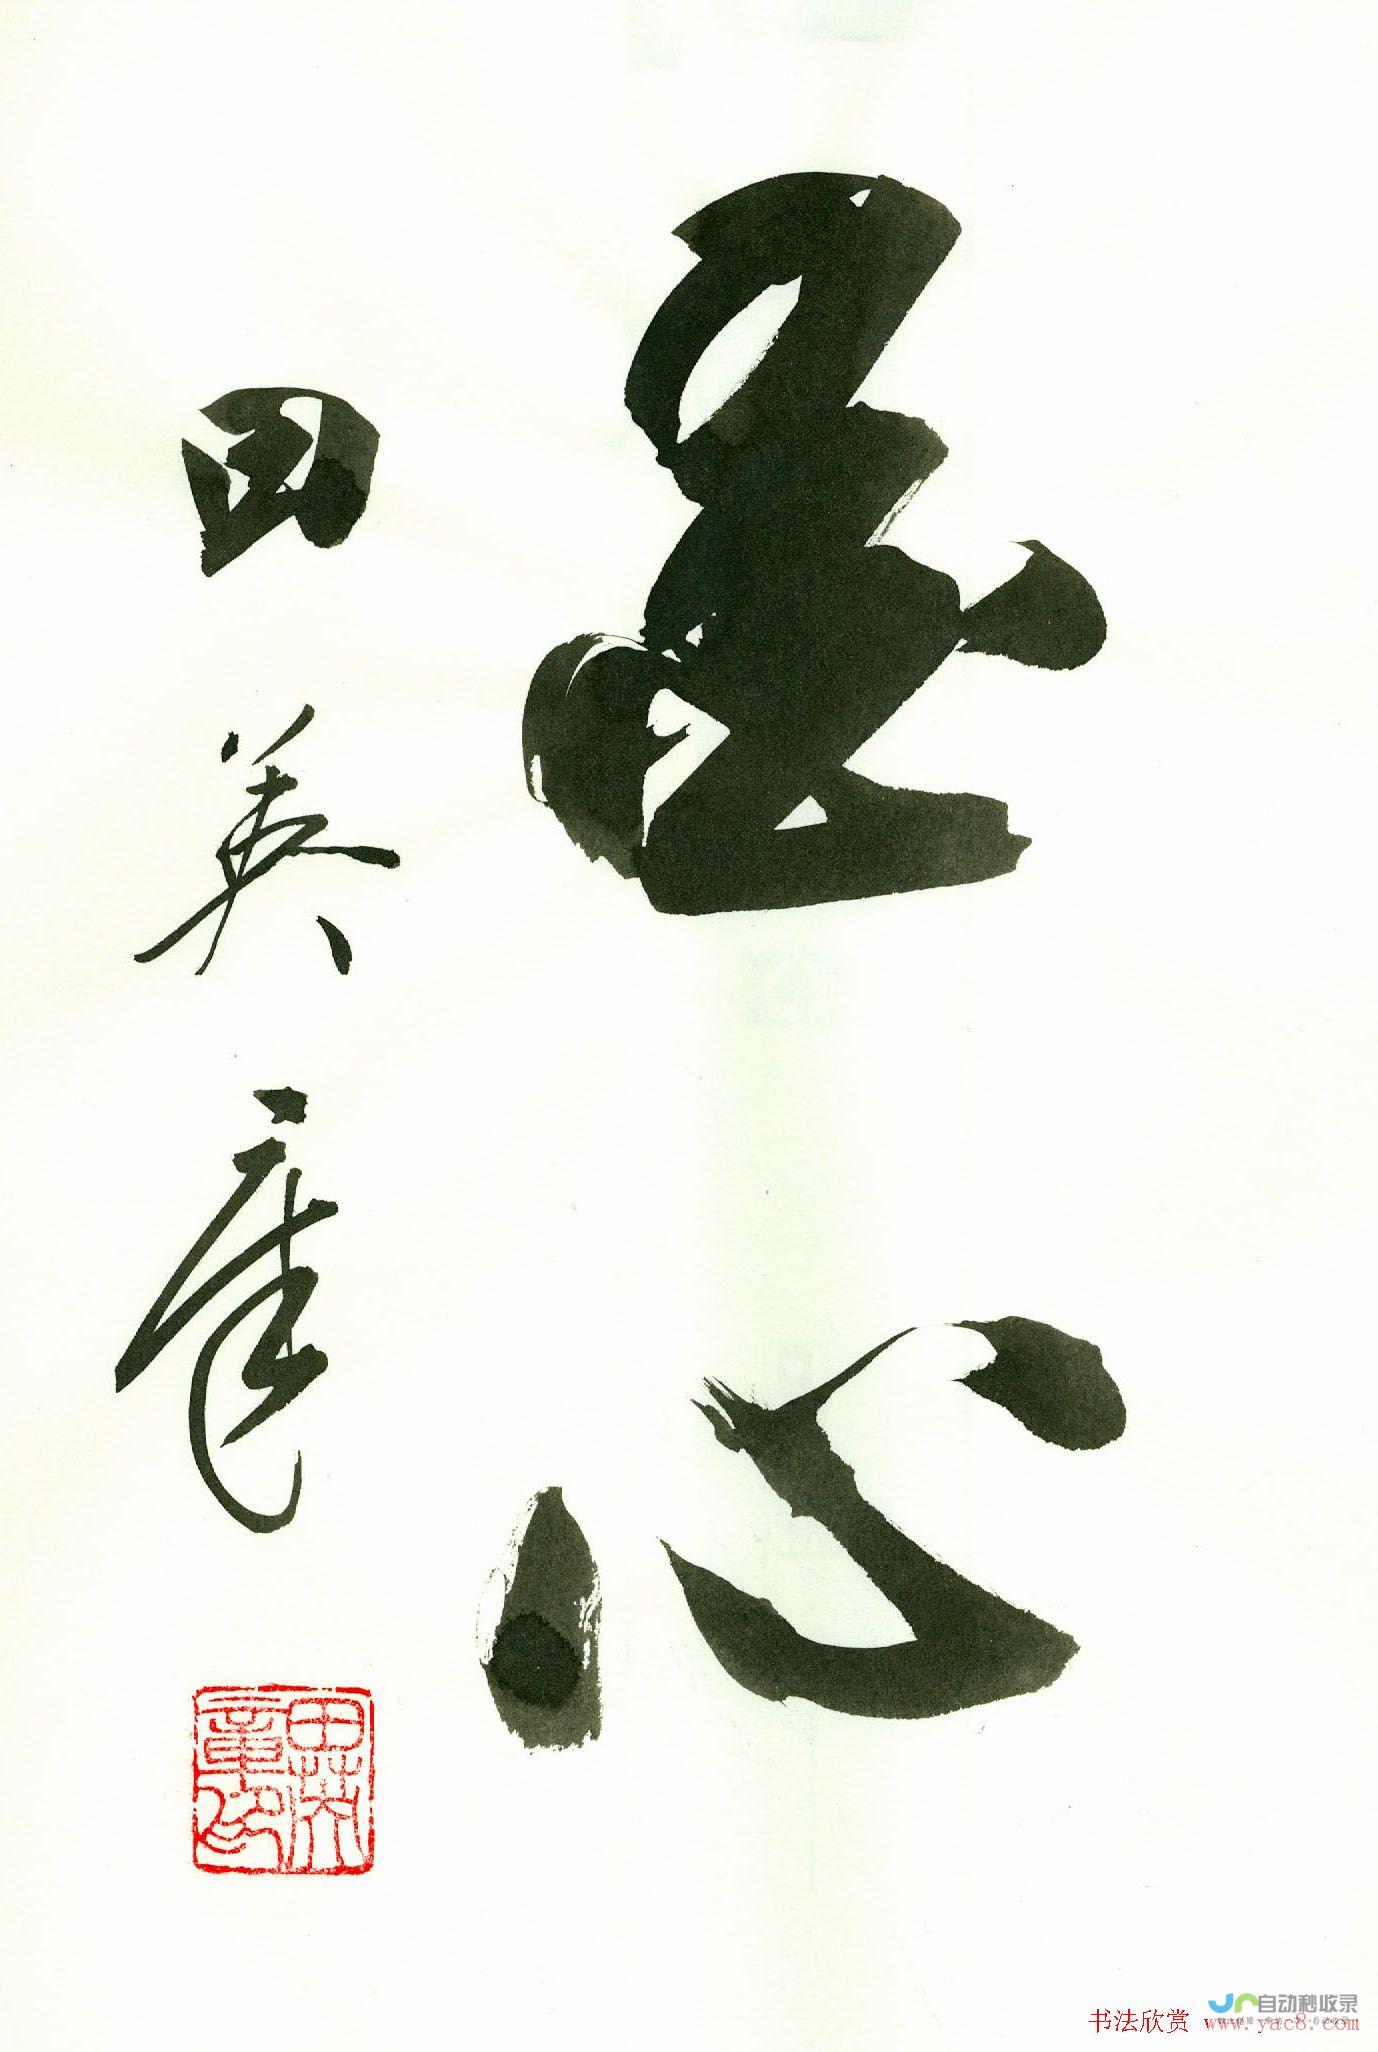 心
田英章
田英
章印
自动秒收录
书法欣赏 www.yac8.com